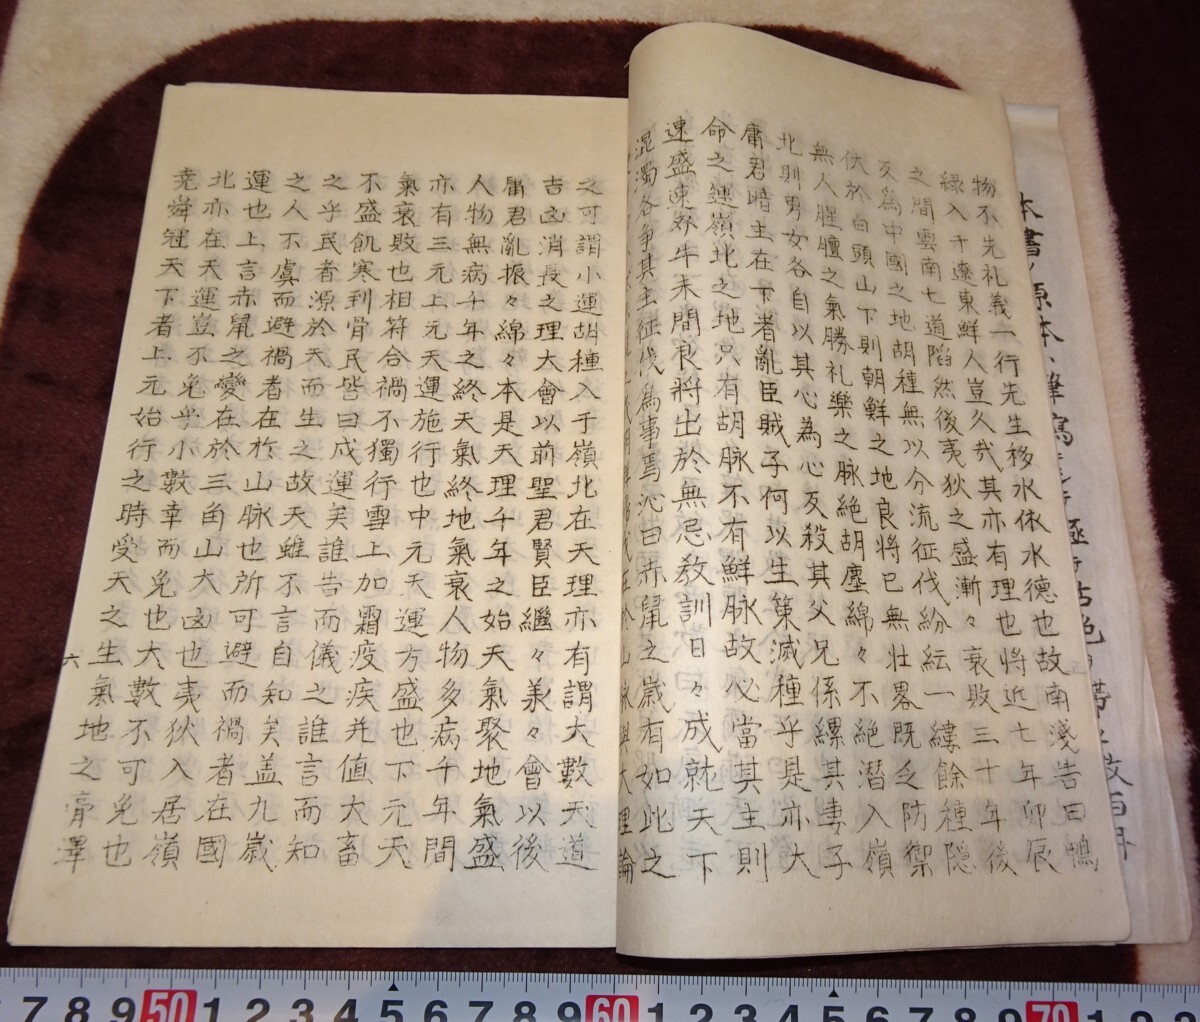 本書ノ原本、筆寫
古色ヲ帯
物不先礼義一行先生移水依水德也故南淺告曰鴨
綠入于遼東鮮人豈久㢤其亦有理也將近七年卯辰
之間雲南七道陷然後夷狄之盛漸々衰敗三十年後
反為中國之地胡種無以分流征伐紛紜一縷餘種隠
伏於白頭山下則朝鮮之地良將已無壯畧既乏防禦
無人腥膻之氣勝礼樂之脉絶胡塵綿々不絶潛入嶺
北則男女各自以其心為心反殺其父兄係縲其妻子
庸君暗主在下者亂臣賊子何以生策滅種乎是亦大
命之運嶺北之地只有胡脉不有鮮脉故必當其主則
速盛速牛未間良將出於無忌敎訓日々成就天下
混濁各争其主征伐為事焉沁曰赤鼠之歳有如此之
山脉與大理論
之可謂小運胡種入于嶺北在天理亦有謂大數天道
吉凶消長之理大會以前聖君賢臣繼々羕々會以後
庸君亂振々綿々本是天理千年之始天氣聚地氣盛
人物無病千年之終天氣終地氣衰人物多病千年間
亦有三元上元天運施行也中元天運方盛也下元天
氣衰敗也相符合禍不獨行雪上加霜疫疾并值大畜
不盛飢寒到骨民皆曰成運矣誰告而儀之誰言而知
之乎民者源於天而生之故天雖不言自知矣盖九歳
之人不虞而避禍者在於山脉也所可避而禍者在國
運也上言赤鼠之變在於三角山大凶也夷狄入居嶺
北亦在天運豈不免乎小數幸而免也大數不可免也
尭舜冠天下者上元始行之時受天之生氣地之膏澤
六
7 8 9 50 1 2 3 4 5 6 7 8 9 60 1 2 3 4 5 6 7 8 9 70 1 2